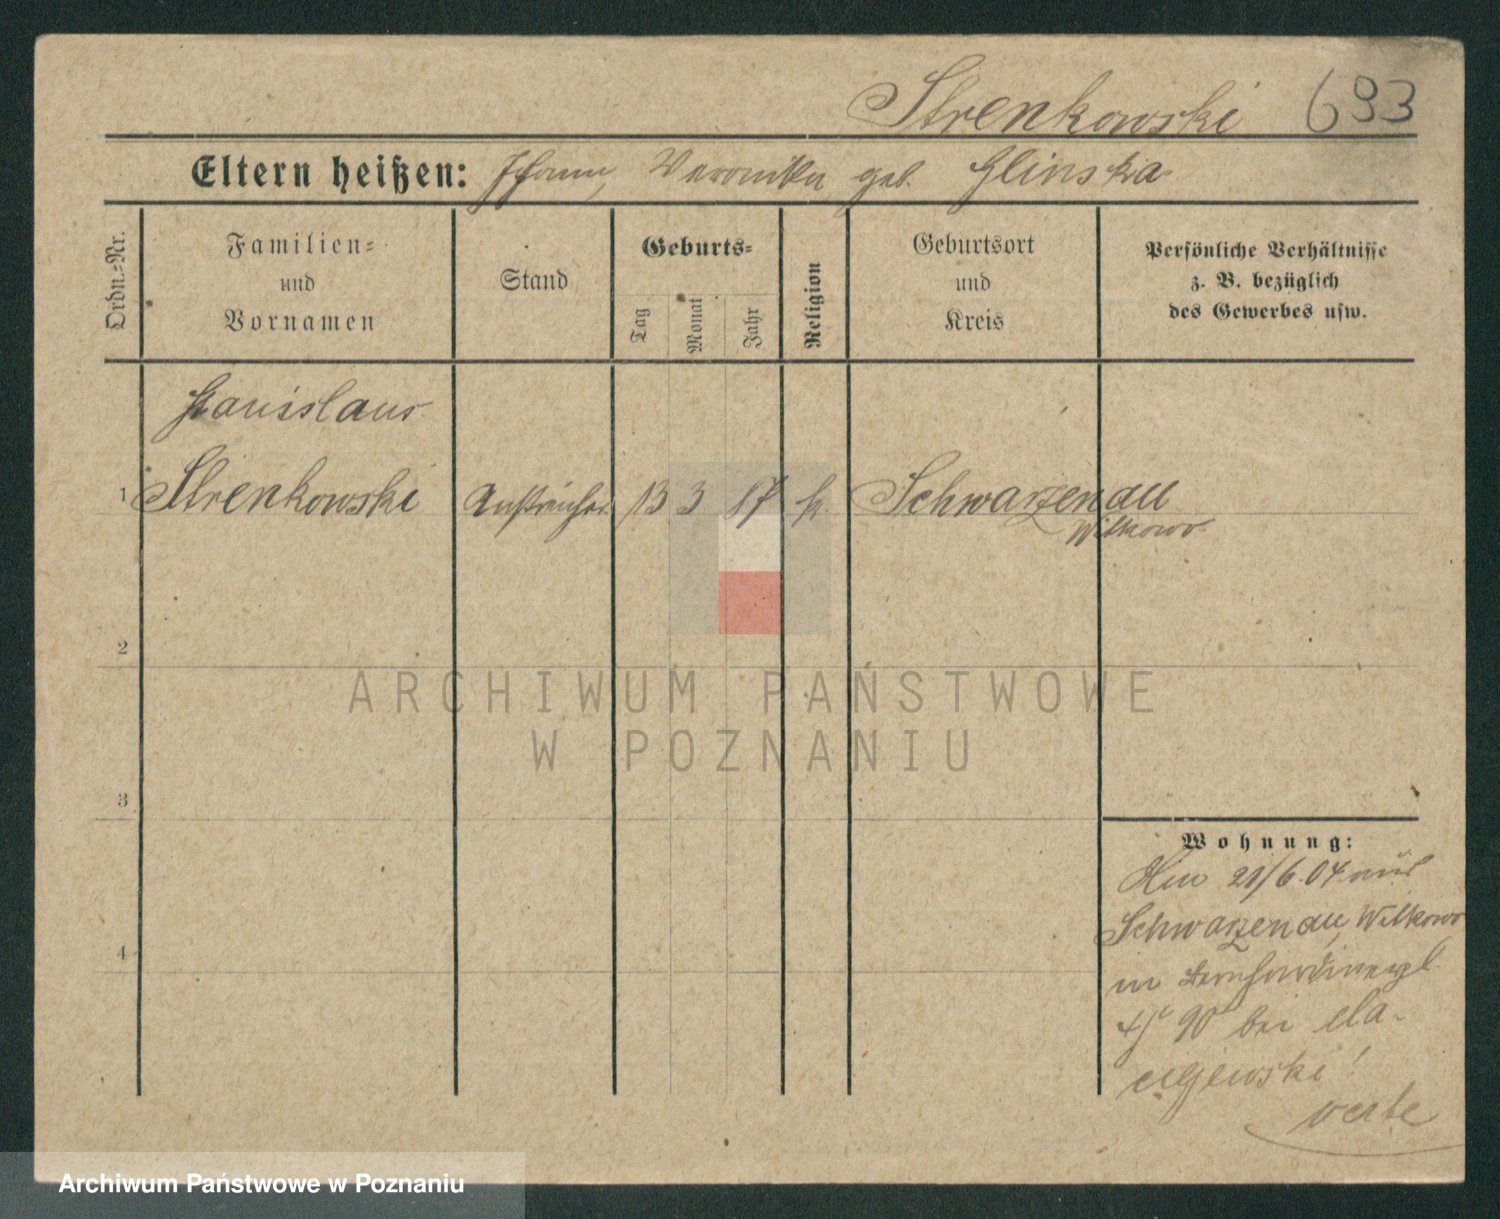 Strenkowski 693
Eltern heißen: Johann, Veronika geb. Glinska
Ordn.=Nr.
Familien=
und
Vornamen
Stand
Geburts=
Tag
Monat
Jahr
Religion
Geburtsort
und
Kreis
Persönliche Verhältnisse
z. B. bezüglich
des Gewerbes usw.
Stanislaus
1 Strenkowski Anstreicher 13 3 87 k. Schwarzenau
Witkowo
2
3
4
Wohnung:
21/6.04 aus
Schwarzenau, Witkowo
in
bei
ARCHIWUM PAŃSTWOWE
W POZNANIU
Archiwum Państwowe w Poznaniu